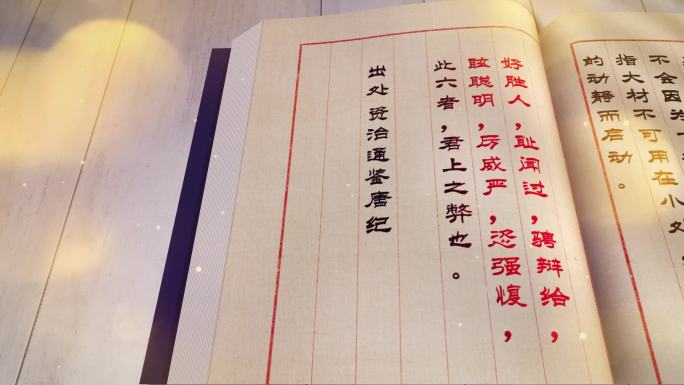 不会因为
指大材不可用在小处
的动静而启动。
好胜人，耻闻过，骋辩给，
眩聪明，厉威严，恣强愎，
此六者，君上之弊也。
出处 资治通鉴唐纪